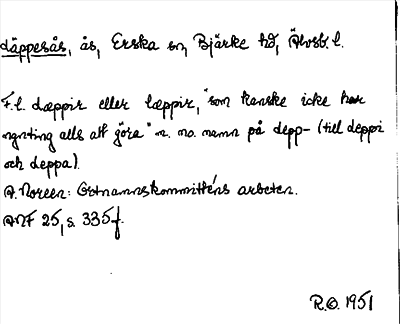 Läppesås, ås, Erska sn, Bjärke hd, Älvsb. l.
F. l. dæppir eller læppir, "som kanske icke har
ngnting alls att göra" m. no. namn på depp- (till deppi
och deppa).
A. Noreen: Ortnamnskommitténs arbeten.
ANF 25, s. 335 f.
R.O. 1951